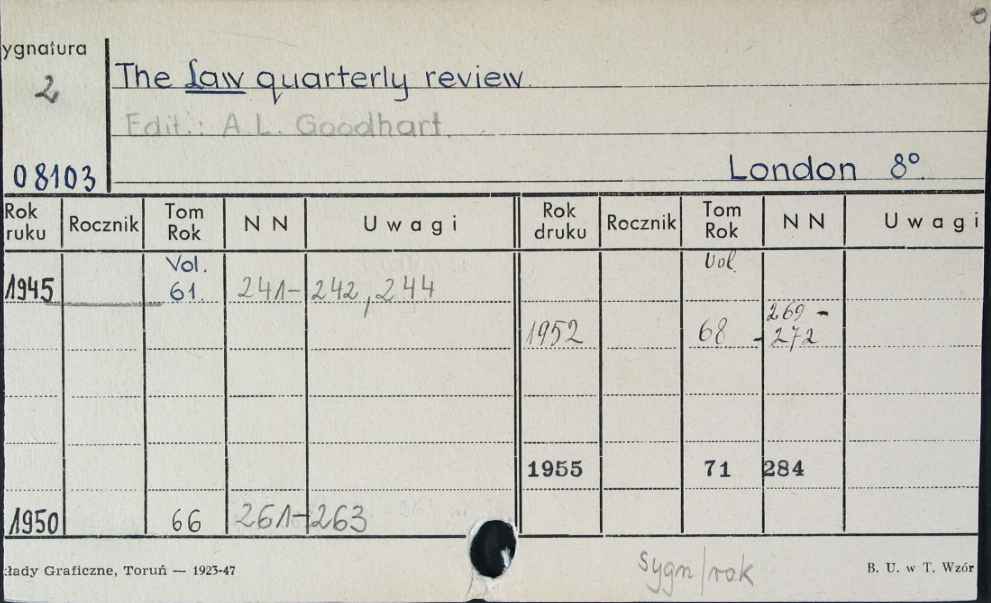 ygnatura
2
The Law quarterly review
Edit.: A. L. Goodhart.
08103
London 8°.
Rok ruku Rocznik Tom Rok N N Uwagi Rok druku Rocznik Tom Rok N N Uwagi
Vol. Vol.
1945 61. 241-242, 244
1952 68 269 -
- 272
1955 71 284
1950 66 261-263
kłady Graficzne, Toruń — 1923-47
sygn/rok
B. U. w T. Wzór